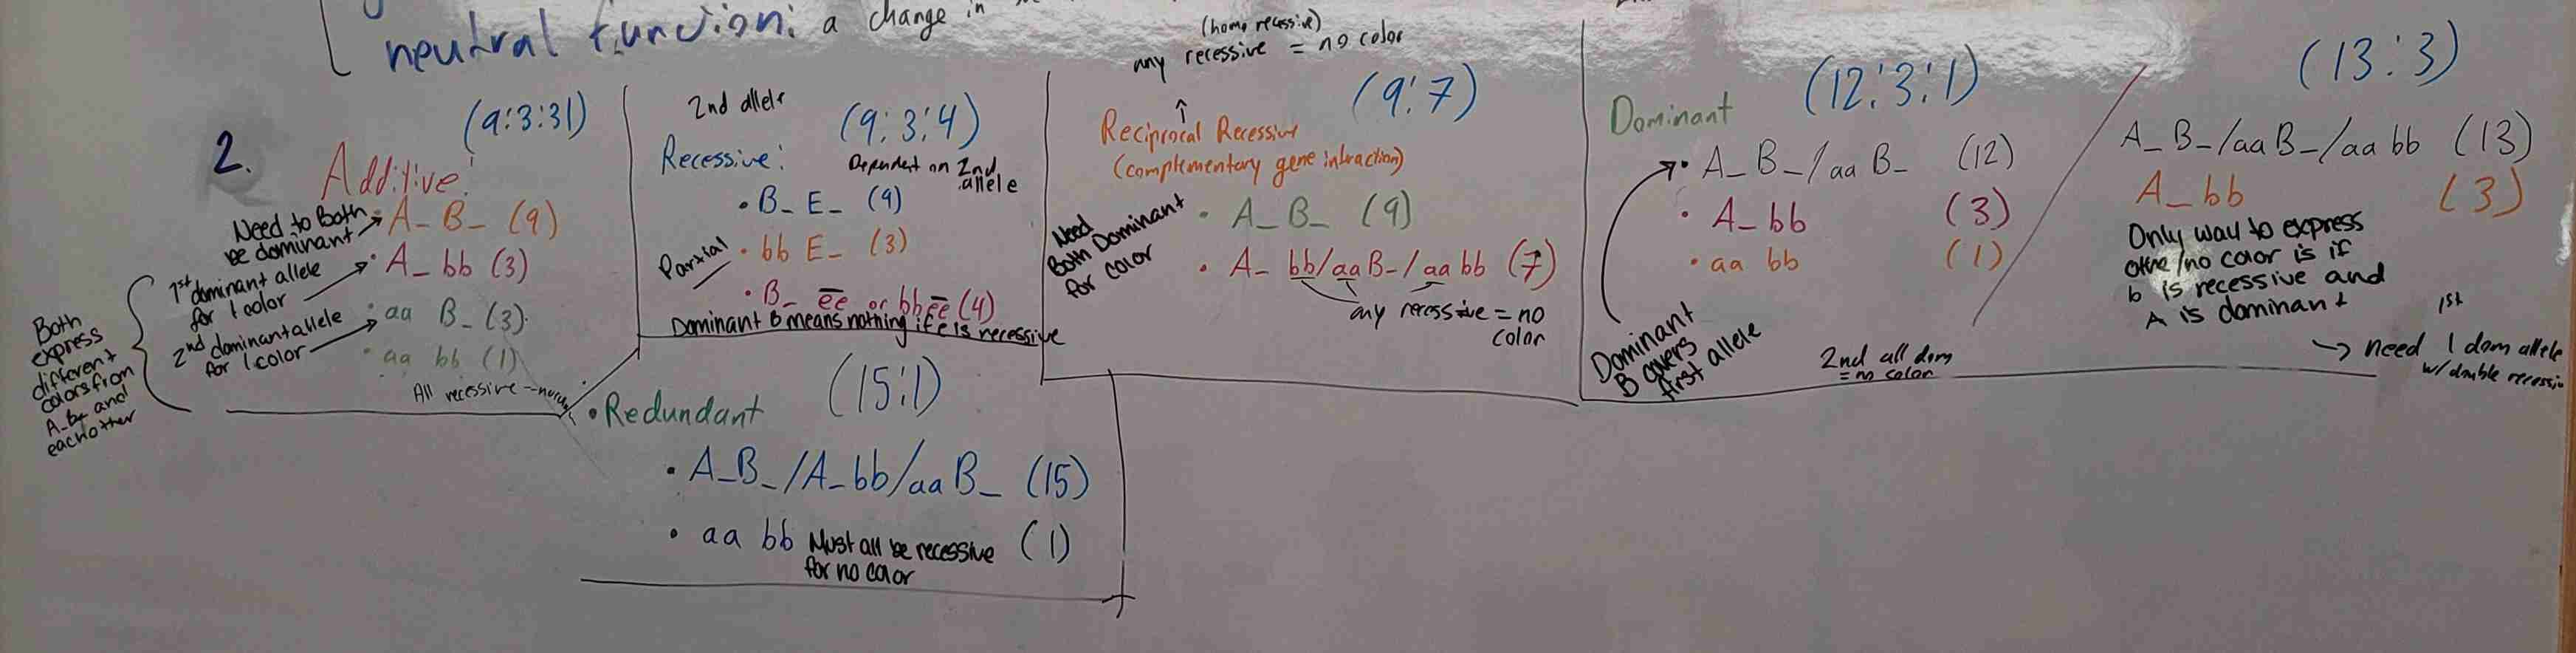 neutral function: a change in
2.
(9:3:31)
Additive:
Need to Both
be dominant
A_ B_ (9)
1st dominant allele
for 1 color
A_ bb (3)
2nd dominant allele
for 1 color
aa B_ (3)
aa bb (1)
All recessive -
Both
express
different
colors from
A_B_ and
each other
2nd allele
(9:3:4)
Recessive:
Dependent on 2nd
allele
• B_ E_ (9)
Partial
• bb E_ (3)
• B_ ee or bb ee (4)
Dominant B means nothing if e is recessive
(homo recessive)
any recessive = no color
(9:7)
Reciprocal Recessive
(complementary gene intraction)
Need
Both Dominant
for color
• A_ B_ (9)
• A_ bb/aa B_/aa bb (7)
any recessive = no
color
Dominant
(12:3:1)
• A_ B_/aa B_ (12)
• A_ bb (3)
• aa bb (1)
Dominant
B covers
first allele
2nd all dom
= no color
(13:3)
A_ B_/aa B_/aa bb (13)
A_ bb (3)
Only way to express
/no color is if
b is recessive and
A is dominant
1st
→ need 1 dom allele
w/ double recessi
• Redundant
(15:1)
• A_B_/A_bb/aa B_ (15)
• aa bb Must all be recessive (1)
for no color